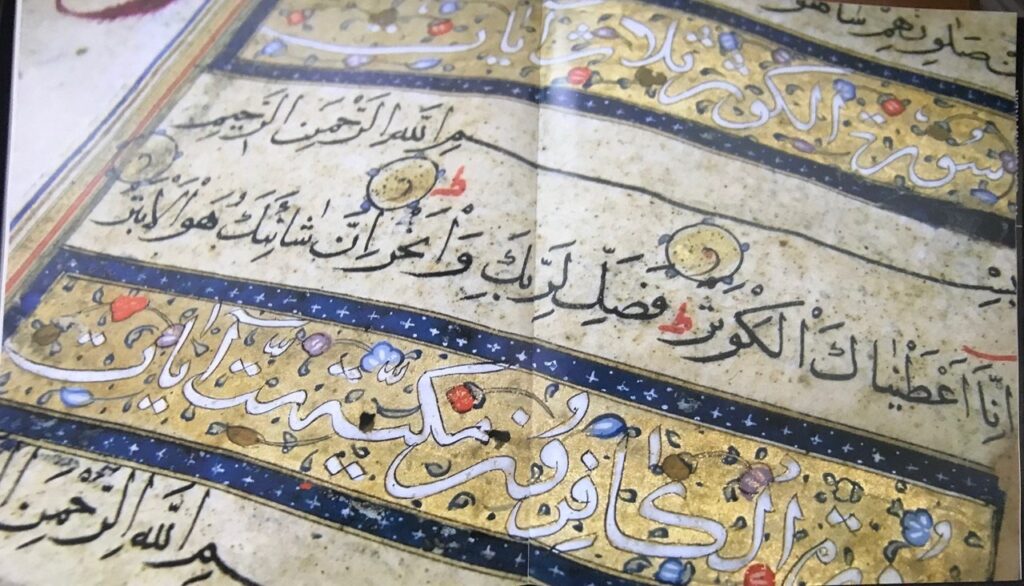 صَلٰوتِهِمْ سَاهُو
سُورَة الكَوْثَر ثلاث آيات
بِسْمِ اللهِ الرَّحْمَنِ الرَّحِيمِ
اِنَّا اَعْطَيْنَاكَ الْكَوْثَرَ ط فَصَلِّ لِرَبِّكَ وَانْحَرْ ط اِنَّ شَانِئَكَ هُوَ الْاَبْتَرُ
الْكَافِرُون مكية ست آيات
مِ اللهِ الرَّحْمَنِ